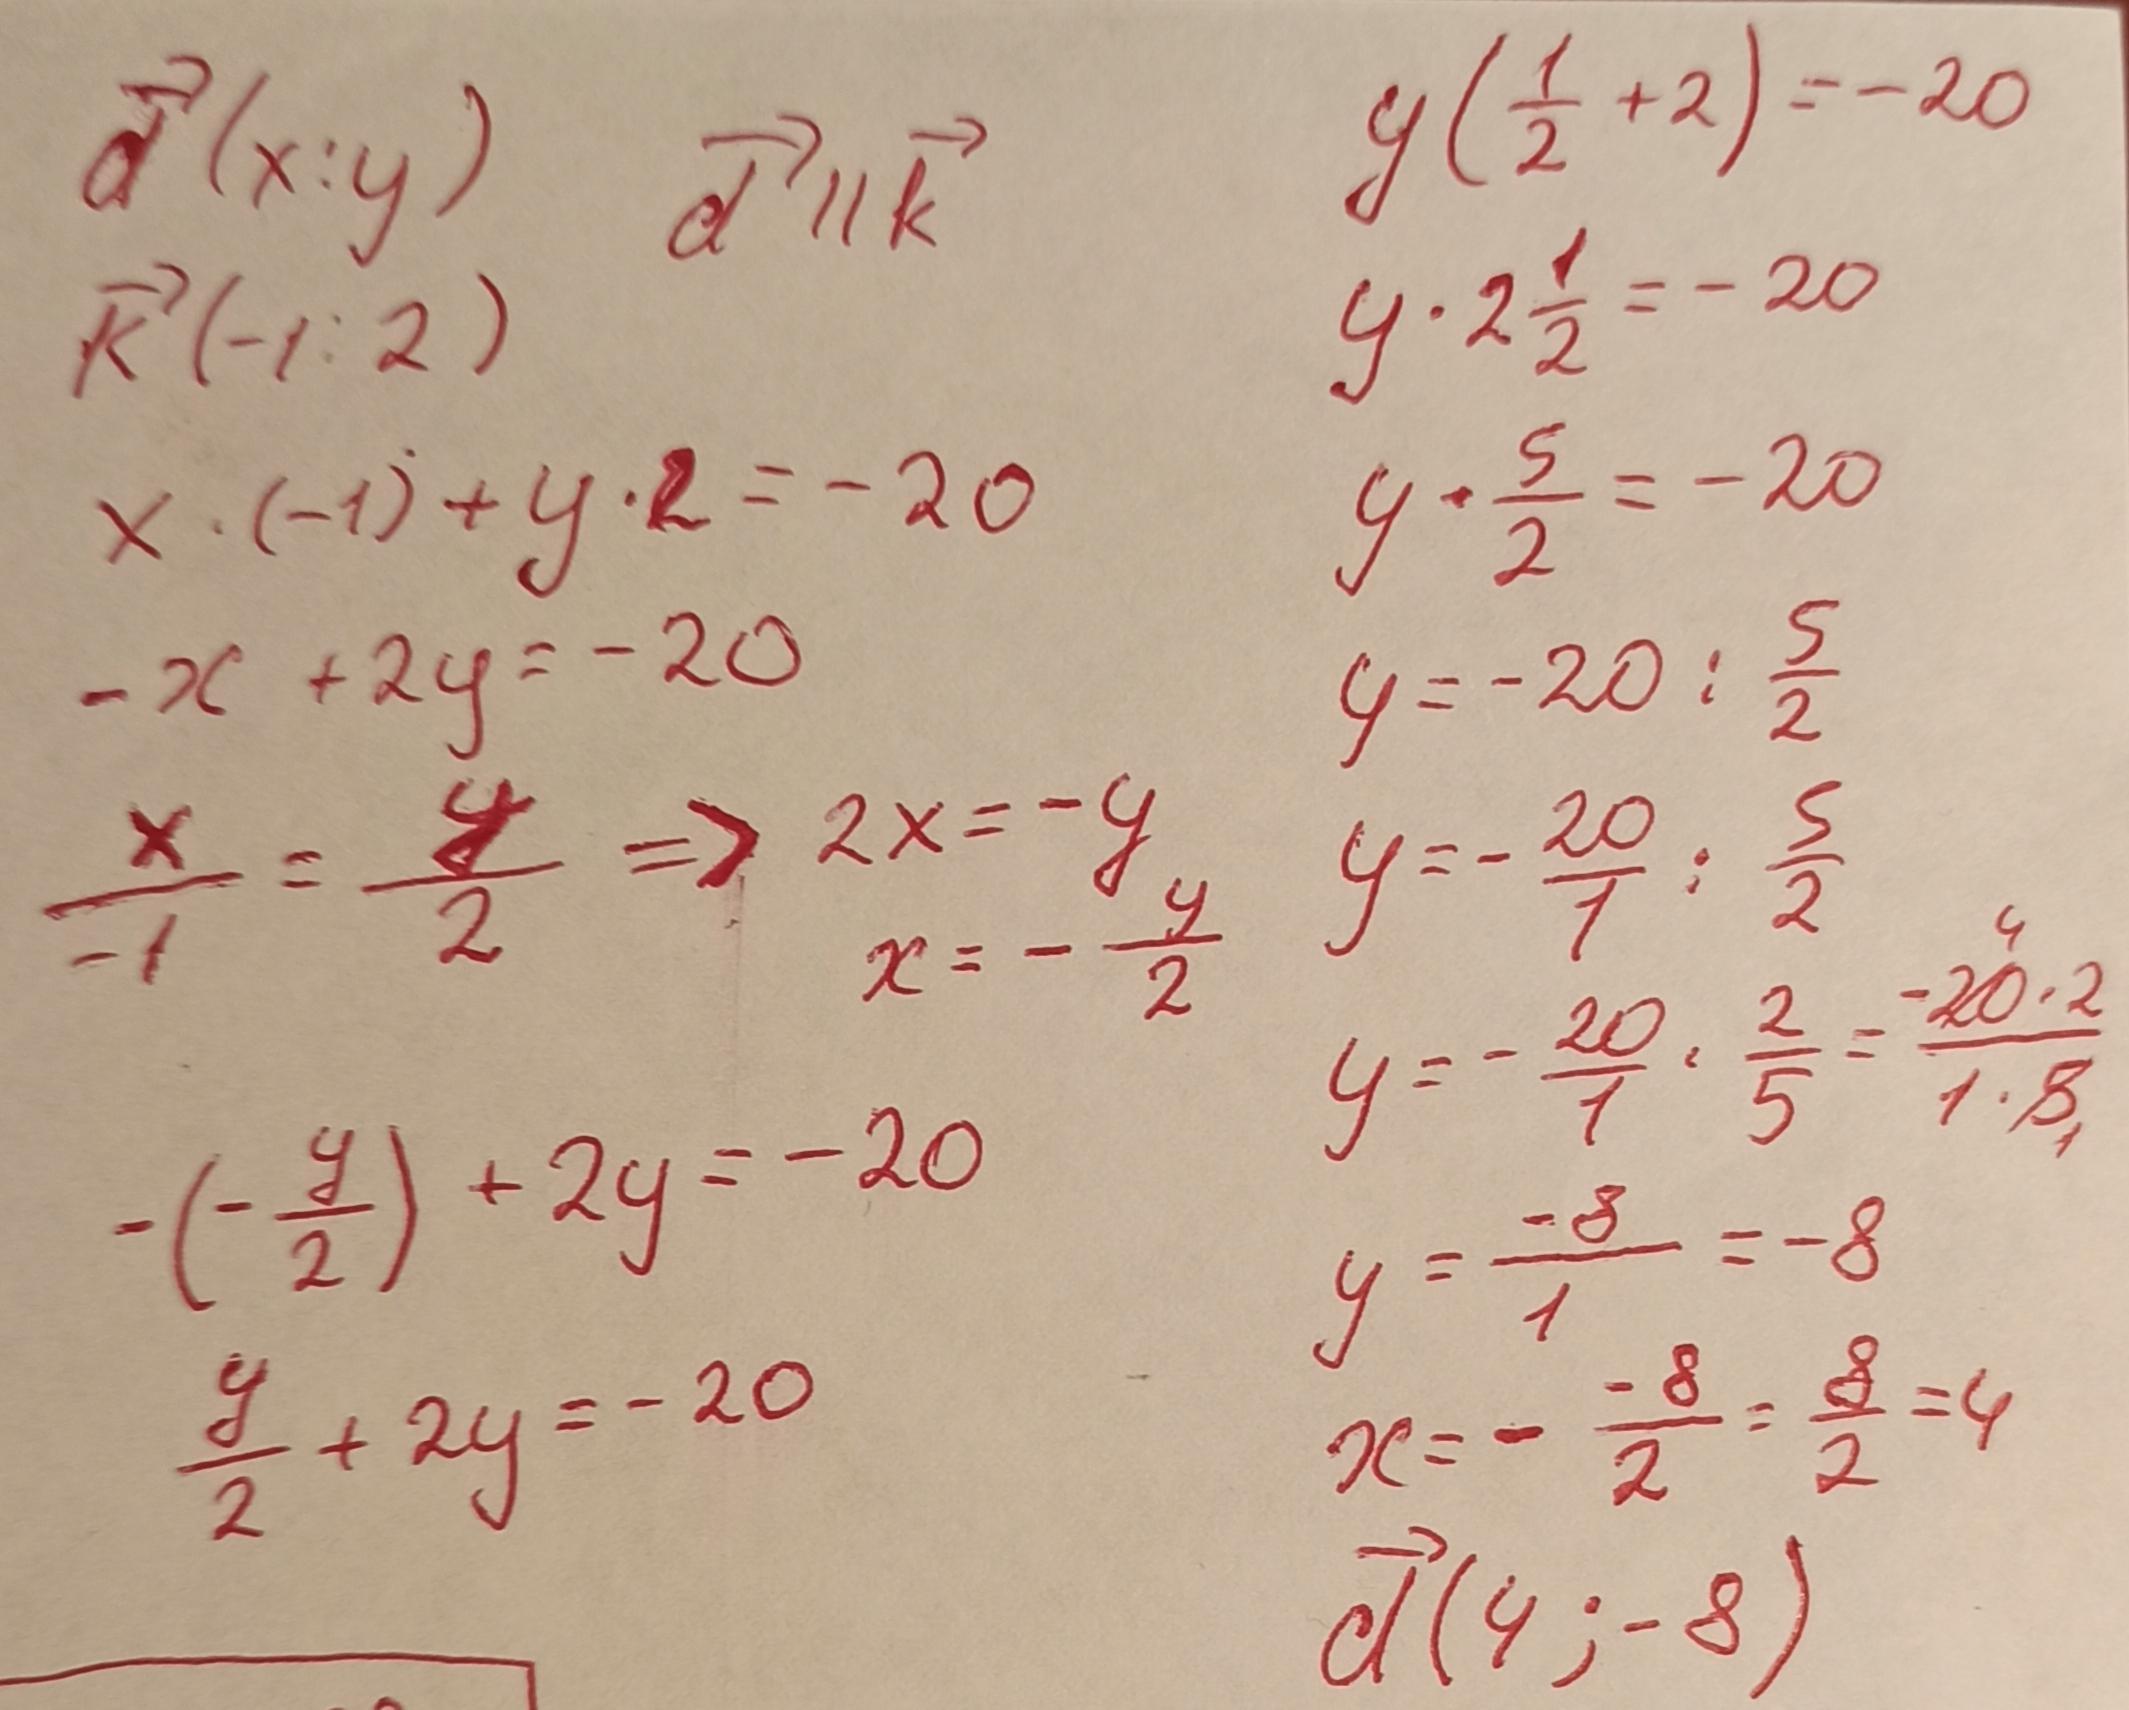 d⃗(x:y) d⃗ || k⃗
k⃗(-1:2)
x·(-1)+y·2=-20
-x+2y=-20
x/-1 = y/2 => 2x=-y
x=-y/2
-(-y/2)+2y=-20
y/2+2y=-20
y(1/2+2)=-20
y·2 1/2=-20
y·5/2=-20
y=-20:5/2
y=-20/1:5/2
y=-20/1·2/5=-20·2/1·5 4 1
y=-8/1=-8
x=- -8/2=8/2=4
d⃗(4;-8)